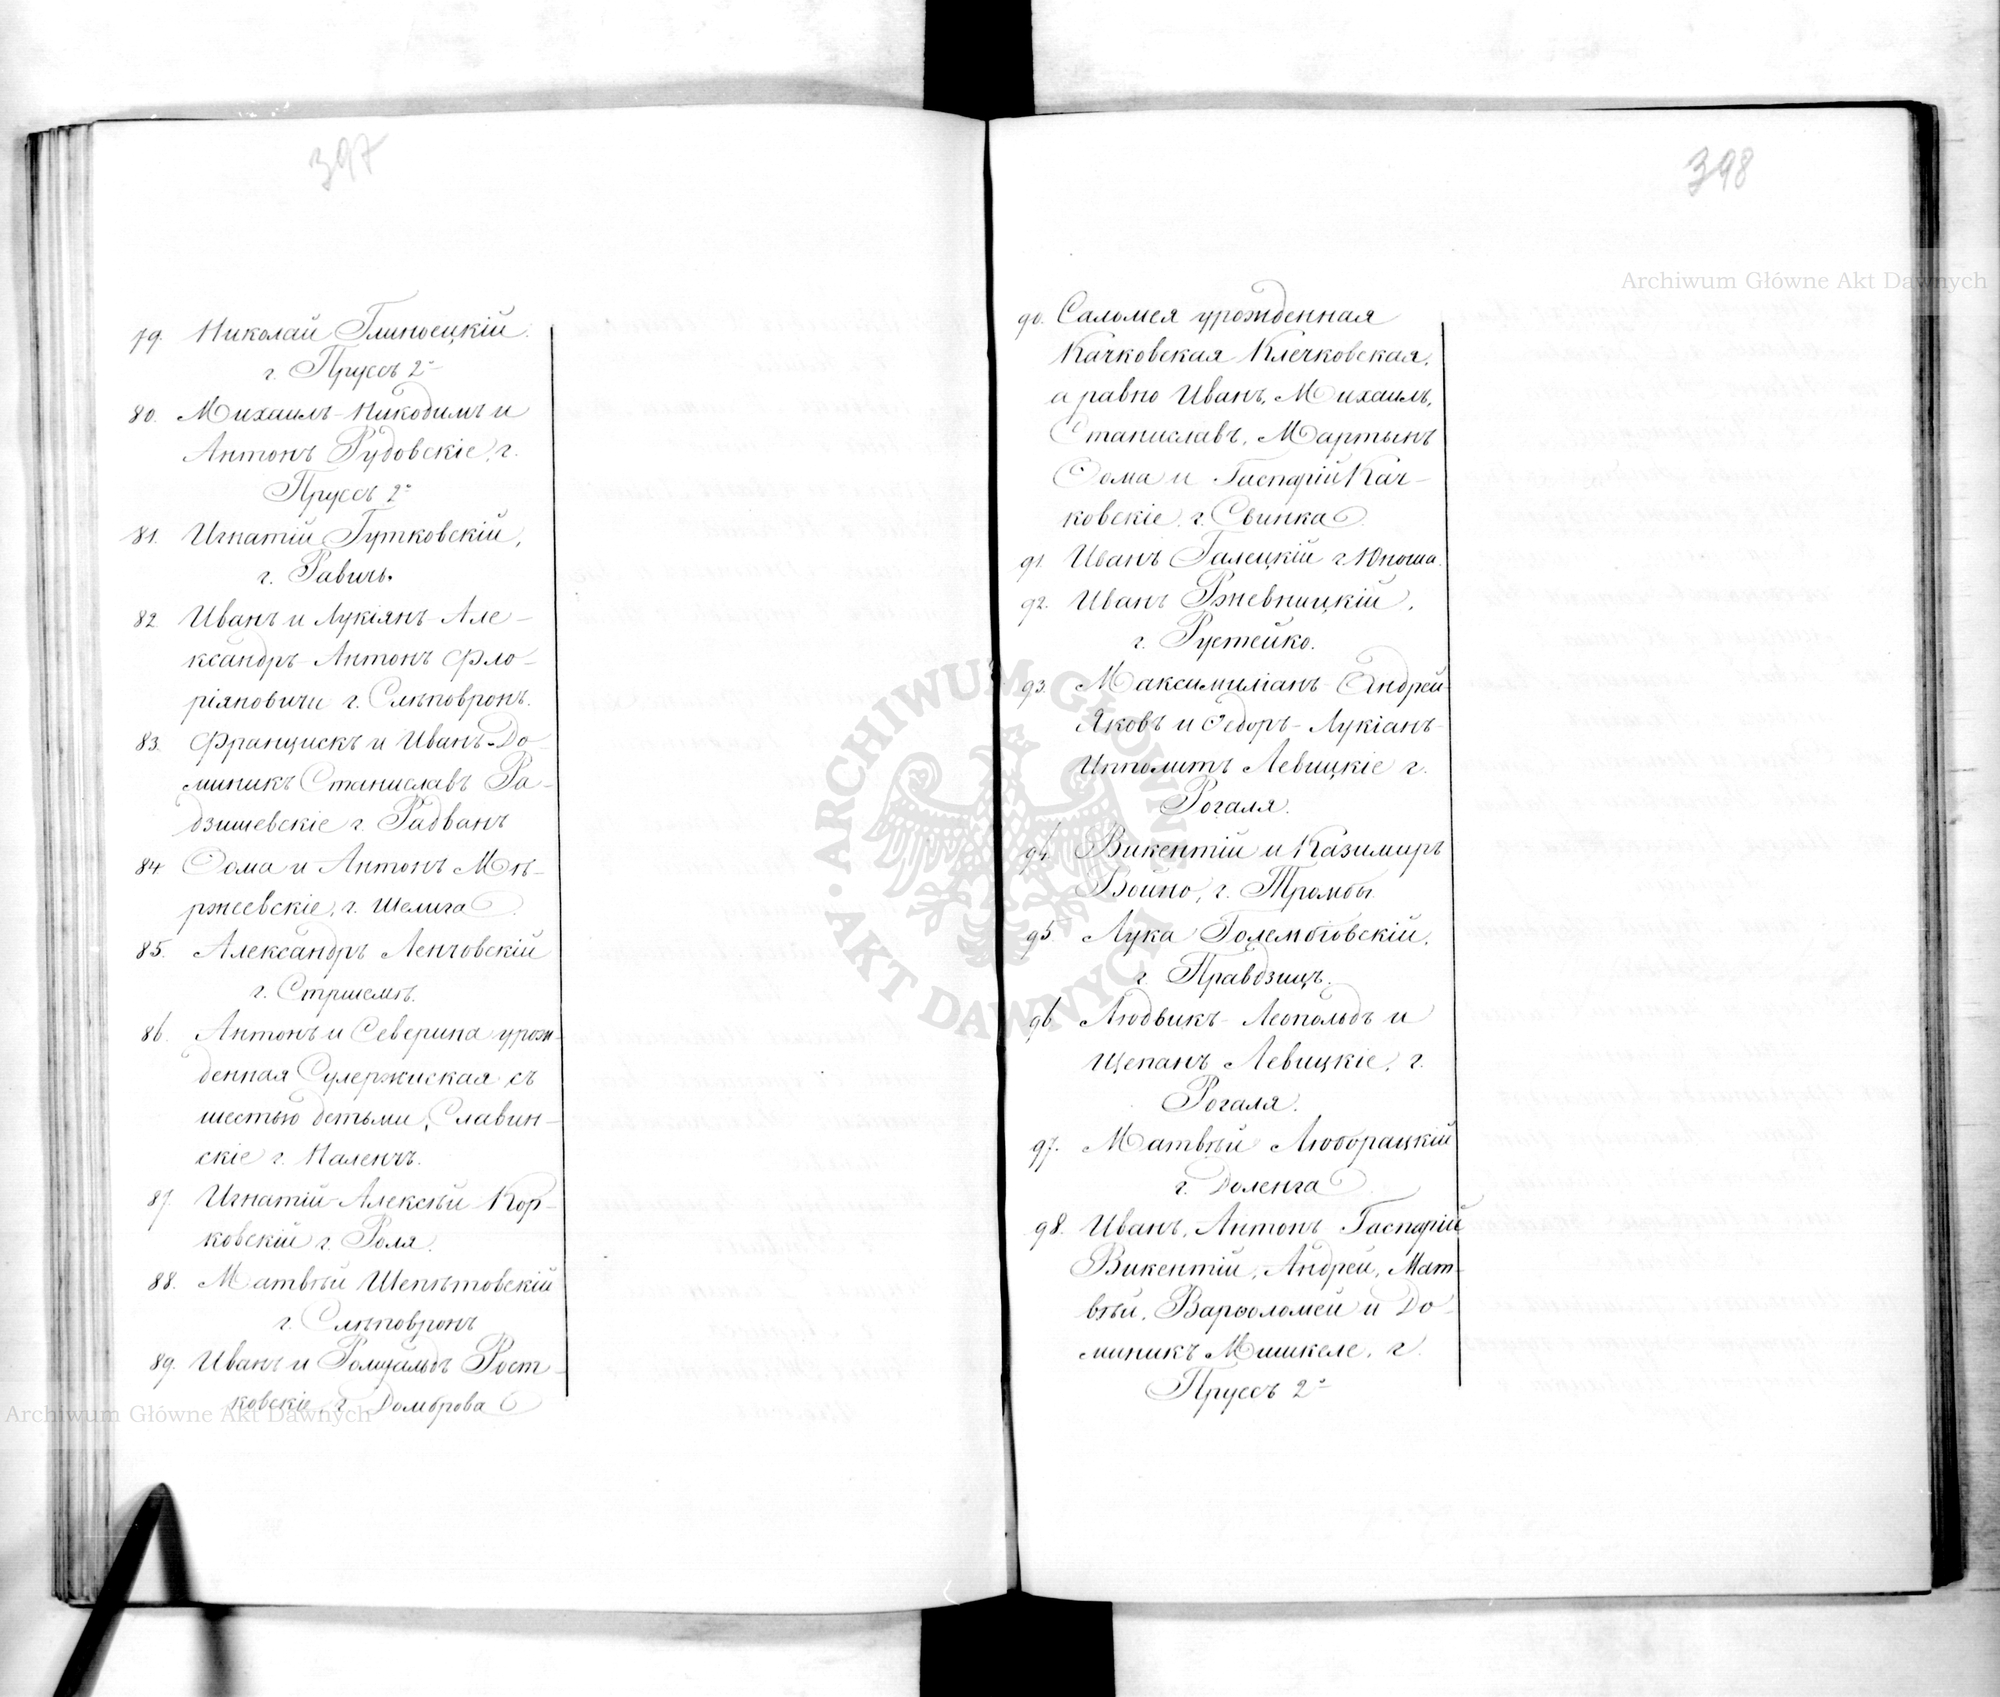 397
79. Николай Глиноецкій.
г. Пруссъ 2-
80. Михаилъ-Никодимъ и
Антонъ Рудовскіе, г.
Пруссъ 2-
81. Игнатій Гутковскій,
г. Равичъ.
82 Иванъ и Лукіянъ-Але-
ксандръ-Антонъ Фло-
ріяновичи г. Слѣповронъ.
83. Францискъ и Иванъ-До-
миникъ Станиславъ Ра-
дзишевскіе г. Радванъ
84 Ѳома и Антонъ Мѣ-
ржеевскіе, г. Шелига
85. Александръ Ленчовскій
г. Стршеме.
86. Антонъ и Северина урож-
денная Сулержиская съ
шестью детьми, Славин-
скіе г. Наленчъ.
87. Игнатій-Алексѣй Кор-
ковскій г. Роля.
88. Матвѣй Шепѣтовскій
г. Слѣповронъ
89. Иванъ и Ромуальдъ Рост-
ковскіе, г. Домброва
398
90. Саломея урожденная
Качковская Клечковская,
а равно Иванъ, Михаилъ,
Станиславъ, Мартынъ
Ѳома и Гаспарій Кач-
ковскіе, г. Свинка
91 Иванъ Галецкій г. Юноша.
92. Иванъ Ржевницкій,
г. Рустейко.
93. Максимиліанъ-Андрей-
Яковъ и Ѳедоръ-Лукіанъ-
Ипполитъ Левицкіе г.
Рогаля.
94 Викентій и Казимиръ
Войно, г. Тромбы.
95. Лука Голембіовскій,
г. Правдзицъ.
96 Людвикъ-Леопольдъ и
Щепанъ Левицкіе, г.
Рогаля.
97. Матвѣй Любрацкій
г. Доленга
98. Иванъ, Антонъ Гаспарій
Викентій, Андрей, Мат-
вѣй, Варѳоломей и До-
миникъ Мишкеле, г.
Пруссъ 2-
Archiwum Główne Akt Dawnych
ARCHIWUM GŁÓWNE AKT DAWNYCH
Archiwum Główne Akt Dawnych